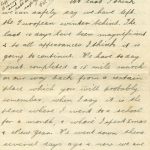 we can safely say we have left
the European winter behind. The
last 10 days have been magnificent
& to all appearances I think it is
going to continue. We have to-day
just completed 15 mile march
on our way back from a certain
place which you will probably
remember when I say it is the
place where I went to a school
for a month, & where I spent Xmas
& New Year. We went down there
several days ago & now we are